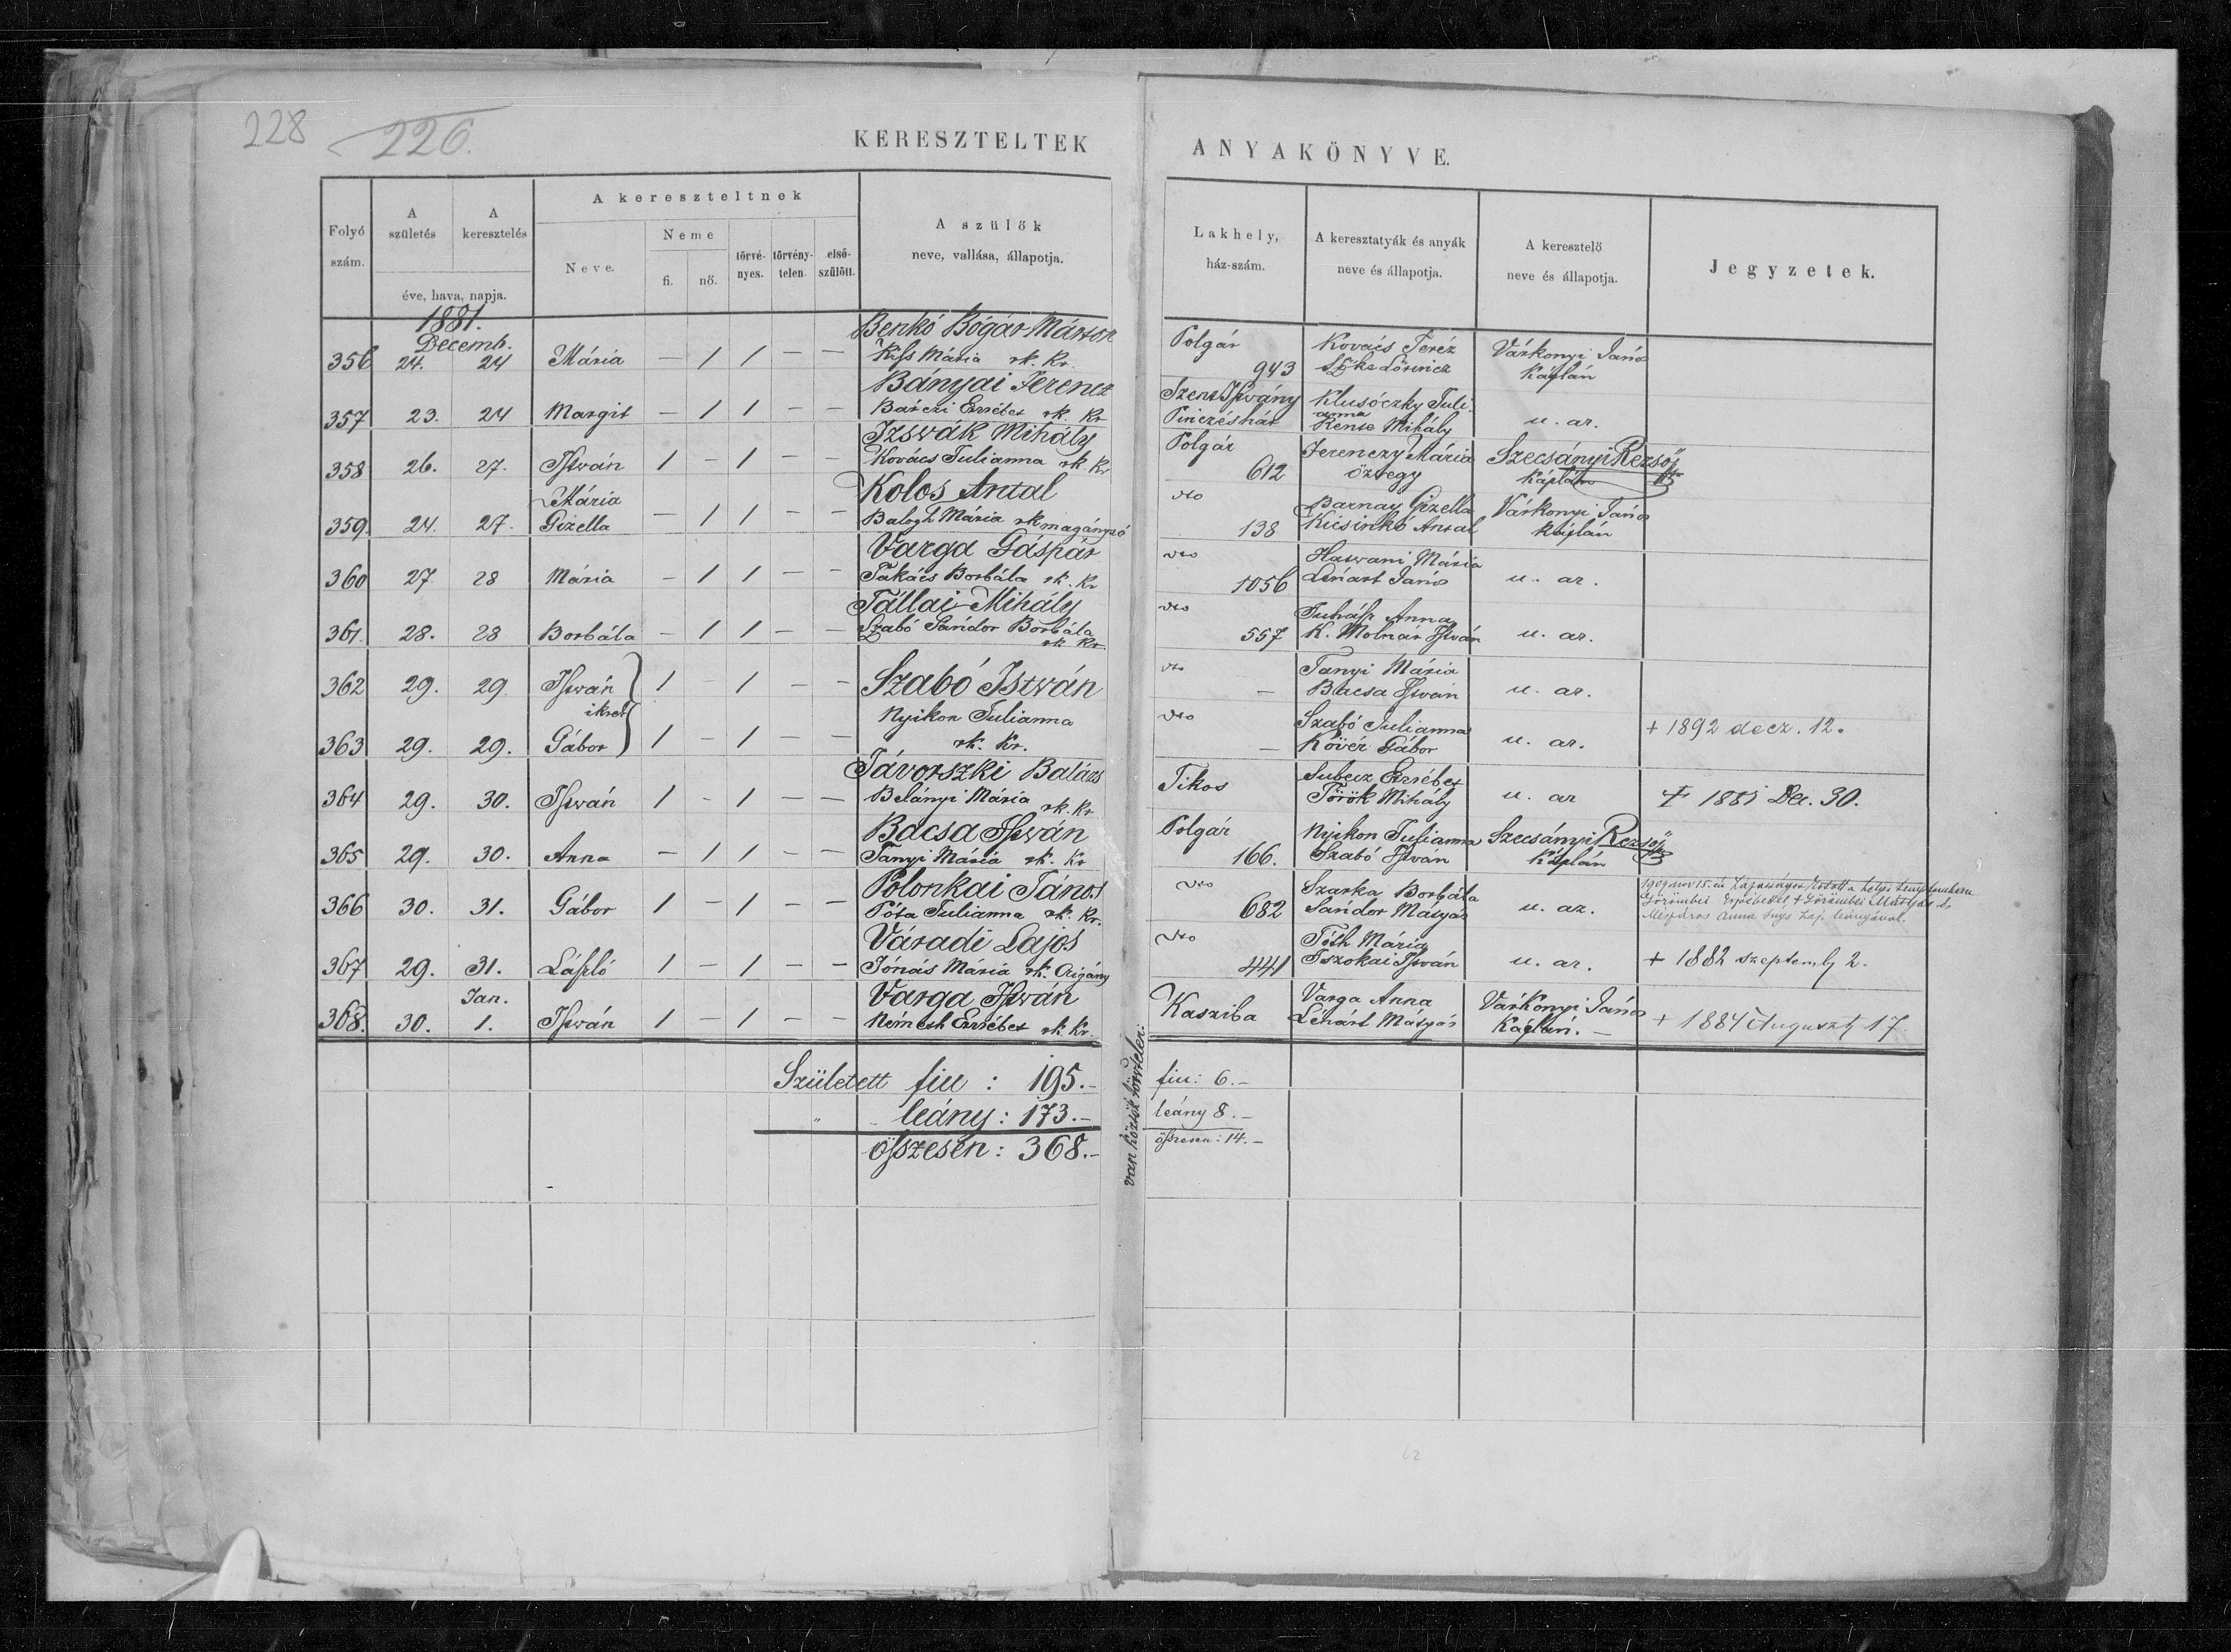 228 226.
KERESZTELTEK ANYAKÖNYVE.
Folyó szám.
A születés
A keresztelés
éve, hava, napja.
A kereszteltnek
Neve.
Neme
fi.
nő.
törvé-nyes.
törvény-telen.
első-szülött.
A szülők
neve, vallása, állapotja.
Lakhely,
ház-szám.
A keresztatyák és anyák
neve és állapotja.
A keresztelő
neve és állapotja.
Jegyzetek.
1881.
Decemb.
Benkó Bógár Márton
Polgár Kovács Teréz Várkonyi János
356 24. 24 Mária – 1 1 – – Kiss Mária rk. Kr. 943 Lőrincz Káplán
Bányai Ferencz
Szent Iván Klusóczky Juli-
357 23. 24 Margit – 1 1 – – Barczi Erzsébet rk. Kr anna
Kense Mihály u. az.
Izsvák Mihály
Polgár Ferenczy Mária Szecsányi Rezső
358 26. 27. István 1 – 1 – – Kovács Julianna rk. Kr 612 özvegy káplán
Mária Kolos Antal
dto Barnay Gizella Várkonyi János
359. 24. 27. Gizella – 1 1 – – Balogh Mária rk magánzó 138 Antal káplán
Varga Gáspár
dto Hatvani Mária
360 27 28 Mária – 1 1 – – Takács Borbála rk. Kr 1056 Lénárt János u. az.
Tállai Mihály
dto Juhász Anna
361. 28. 28 Borbála – 1 1 – – Szabó Sándor Borbála 557 K. Molnár István u. az.
rk Kr.
dto Tanyi Mária
362 29. 29 István 1 – 1 – – Szabó István – Bacsa István u. az.
ikrek Nyikon Julianna
dto Szabó Julianna + 1892 decz. 12.
363 29. 29. Gábor 1 – 1 – – rk. Kr. – Kövér Gábor u. az.
Jávorszki Balázs
Tikos Erzsébet
364 29. 30. István 1 – 1 – – Belányi Mária rk. Kr Török Mihály u. az + 1881 Dec. 30.
Bacsa István
Polgár Nyikon Julianna Szecsányi Rezső
365 29. 30. Anna – 1 1 – – Tanyi Mária rk. Kr 166. Szabó István Káplán
Polonkai János
dto Szarka Borbála
366 30. 31. Gábor 1 – 1 – – Póta Julianna rk. Kr. 682 Sándor Mátyás u. az.
1909 nov 15. én házasságot kötött a helyi templomban
Görömbei Erzsébettel + Görömbei Mátyás és
Mészáros Anna leányával.
Váradi Lajos
dto Tóth Mária
367 29. 31. László 1 – 1 – – Jónás Mária rk. Czigány 441 Tszokai István u. az. + 1882 szeptemb 2.
Jan. Varga István
Kasziba Varga Anna Várkonyi János
368. 30. 1. István 1 – 1 – – Németh Erzsébet rk. Kr. Lénárt Mátyás Káplán. – + 1884 Auguszt 17.
Született fiu : 195.–
„ leány : 173.–
összesen : 368.–
van közöt törvtelen:
fiu: 6.–
leány 8.–
összesen : 14.–